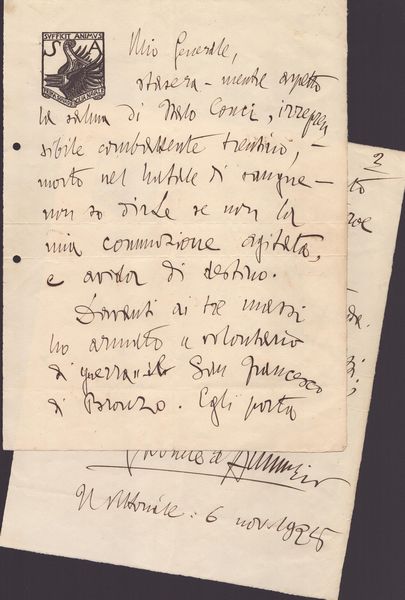 SVFFICIT ANIMVS
S A
Mio Generale,
stasera – mentre aspetto
la salma di Italo Conci, irrepren
sibile combattente trentino,
morto nel Natale di sangue –
non so dirLe se non la
mia commozione agitata,
e avida di destino.
Davanti ai tre massi
ho armato a volontario
di guerra il San Francesco
di Bronzo. Egli porta
2
Il Vittoriale: 6 nov. 1925